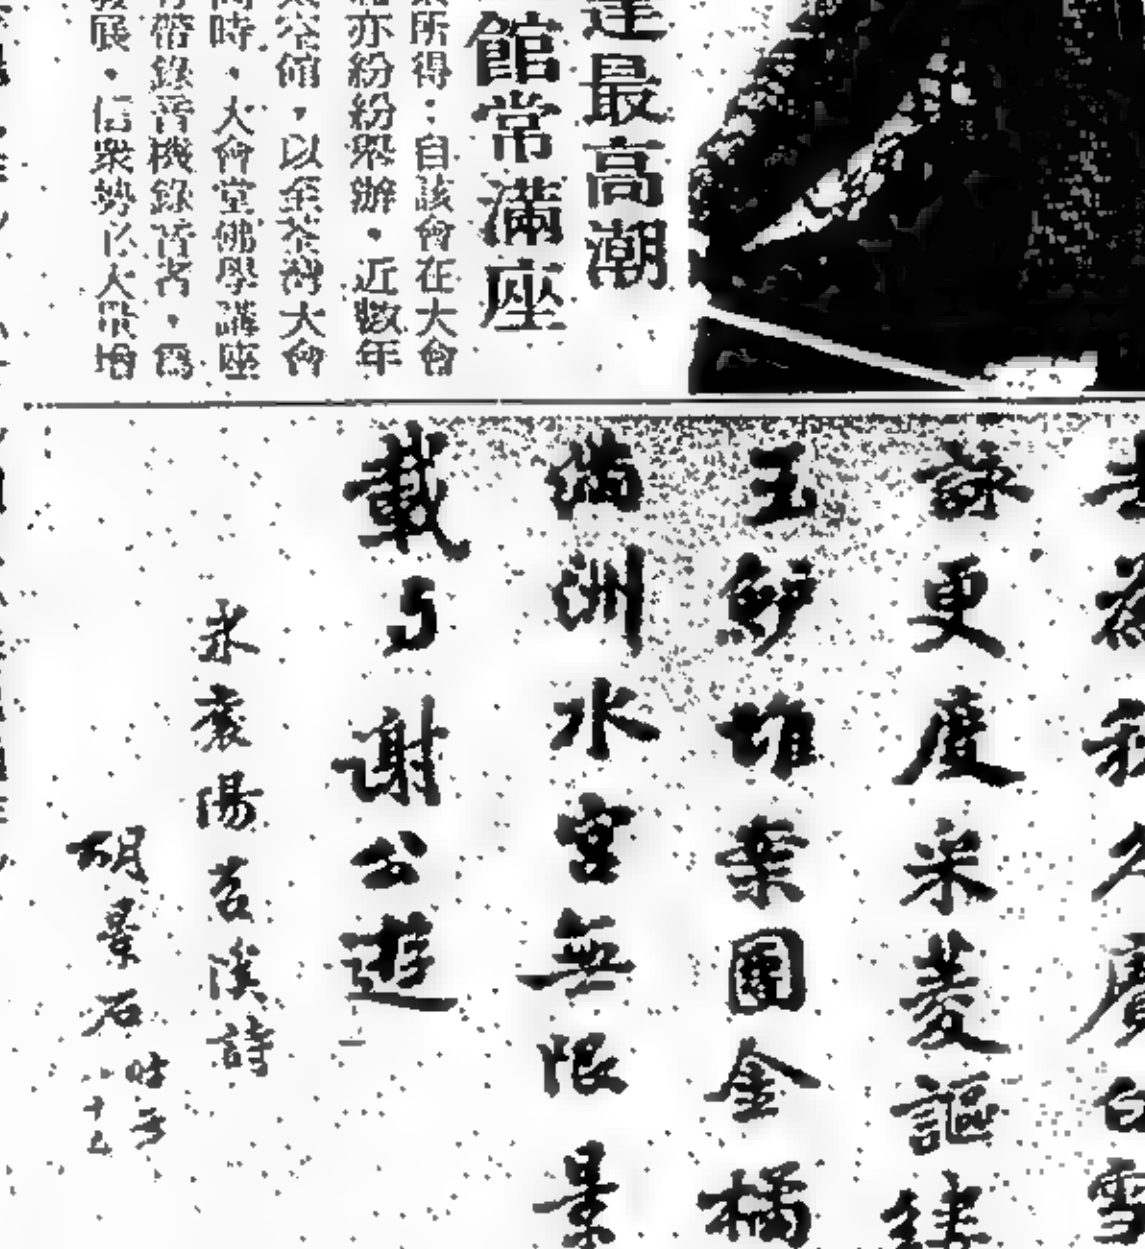 達最高潮
館常滿座
所得：自該會在大會
亦紛紛舉辦・近數年
空館，以至荃灣大會
時・大會堂佛學講座
帶錄音機錄音者，為
展・信衆勢必大量增
去為我久廣白雪
詠更度采菱謳肆
玉鱸堆案圍金橘
滿洲水宮無限景
載与謝公遊
永裳陽吉溪詩
胡景石
時年
八十